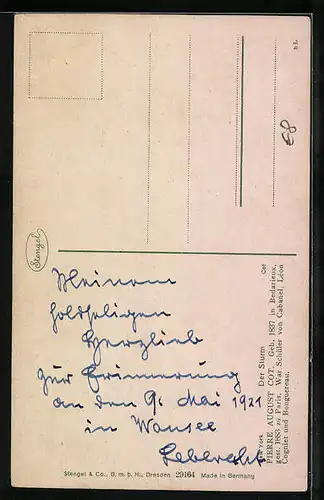 b L
E8
Stengel
Meinem
holdseligen
Herzlieb
zur Erinnerung
an den 9. Mai 1921
in Wansee
Leberecht
New York Der Sturm Cot
PIERRE AUGUST COT. Geb. 1837 in Bedarieux,
gest. 1883 zu Paris. War Schüler von Cabanel, Léon
Cogniet und Bouguereau.
Stengel & Co., G. m. b. H., Dresden 29164 Made in Germany